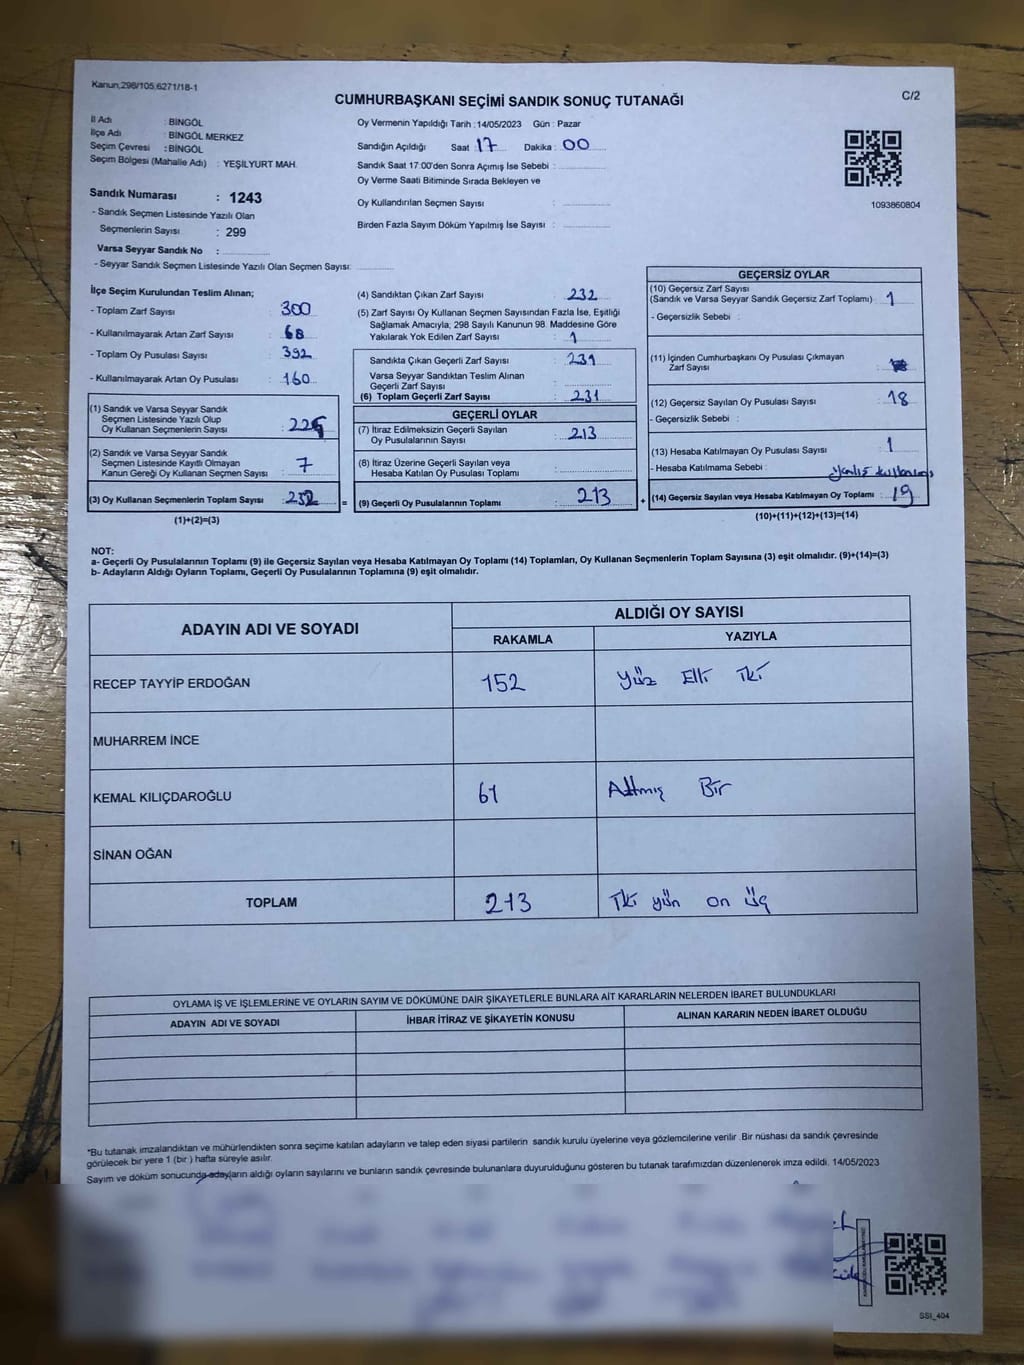 Kanun,298/105,6271/18-1
C/2
CUMHURBAŞKANI SEÇİMİ SANDIK SONUÇ TUTANAĞI
İl Adı : BİNGÖL
İlçe Adı : BİNGÖL MERKEZ
Seçim Çevresi : BİNGÖL
Seçim Bölgesi (Mahalle Adı) : YEŞİLYURT MAH.
Sandık Numarası : 1243
- Sandık Seçmen Listesinde Yazılı Olan
Seçmenlerin Sayısı : 299
Varsa Seyyar Sandık No :
- Seyyar Sandık Seçmen Listesinde Yazılı Olan Seçmen Sayısı:
Oy Vermenin Yapıldığı Tarih : 14/05/2023 Gün : Pazar
Sandığın Açıldığı Saat : 17 Dakika : 00
Sandık Saat 17:00'den Sonra Açımış İse Sebebi :
Oy Verme Saati Bitiminde Sırada Bekleyen ve
Oy Kullandırılan Seçmen Sayısı :
Birden Fazla Sayım Döküm Yapılmış İse Sayısı :
1093860804
İlçe Seçim Kurulundan Teslim Alınan;
- Toplam Zarf Sayısı : 300
- Kullanılmayarak Artan Zarf Sayısı : 68
- Toplam Oy Pusulası Sayısı : 392
- Kullanılmayarak Artan Oy Pusulası : 160
(1) Sandık ve Varsa Seyyar Sandık
Seçmen Listesinde Yazılı Olup
Oy Kullanan Seçmenlerin Sayısı :
(2) Sandık ve Varsa Seyyar Sandık
Seçmen Listesinde Kayıtlı Olmayan
Kanun Gereği Oy Kullanan Seçmen Sayısı : 7
(3) Oy Kullanan Seçmenlerin Toplam Sayısı : 232 =
(1)+(2)=(3)
(4) Sandıktan Çıkan Zarf Sayısı : 232
(5) Zarf Sayısı Oy Kullanan Seçmen Sayısından Fazla İse, Eşitliği
Sağlamak Amacıyla, 298 Sayılı Kanunun 98. Maddesine Göre
Yakılarak Yok Edilen Zarf Sayısı : 1
Sandıkta Çıkan Geçerli Zarf Sayısı : 231
Varsa Seyyar Sandıktan Teslim Alınan
Geçerli Zarf Sayısı :
(6) Toplam Geçerli Zarf Sayısı : 231
GEÇERLİ OYLAR
(7) İtiraz Edilmeksizin Geçerli Sayılan
Oy Pusulalarının Sayısı : 213
(8) İtiraz Üzerine Geçerli Sayılan veya
Hesaba Katılan Oy Pusulası Toplamı :
(9) Geçerli Oy Pusulalarının Toplamı : 213 +
GEÇERSİZ OYLAR
(10) Geçersiz Zarf Sayısı
(Sandık ve Varsa Seyyar Sandık Geçersiz Zarf Toplamı) : 1
- Geçersizlik Sebebi :
(11) İçinden Cumhurbaşkanı Oy Pusulası Çıkmayan
Zarf Sayısı :
(12) Geçersiz Sayılan Oy Pusulası Sayısı : 18
- Geçersizlik Sebebi :
(13) Hesaba Katılmayan Oy Pusulası Sayısı : 1
- Hesaba Katılmama Sebebi : yanlış
(14) Geçersiz Sayılan veya Hesaba Katılmayan Oy Toplamı : 19
(10)+(11)+(12)+(13)=(14)
NOT:
a- Geçerli Oy Pusulalarının Toplamı (9) ile Geçersiz Sayılan veya Hesaba Katılmayan Oy Toplamı (14) Toplamları, Oy Kullanan Seçmenlerin Toplam Sayısına (3) eşit olmalıdır. (9)+(14)=(3)
b- Adayların Aldığı Oyların Toplamı, Geçerli Oy Pusulalarının Toplamına (9) eşit olmalıdır.
ADAYIN ADI VE SOYADI
ALDIĞI OY SAYISI
RAKAMLA YAZIYLA
RECEP TAYYİP ERDOĞAN 152 Yüz Elli İki
MUHARREM İNCE
KEMAL KILIÇDAROĞLU 61 Altmış Bir
SİNAN OĞAN
TOPLAM 213 İki yün on üç
OYLAMA İŞ VE İŞLEMLERİNE VE OYLARIN SAYIM VE DÖKÜMÜNE DAİR ŞİKAYETLERLE BUNLARA AİT KARARLARIN NELERDEN İBARET BULUNDUKLARI
ADAYIN ADI VE SOYADI İHBAR İTİRAZ VE ŞİKAYETİN KONUSU ALINAN KARARIN NEDEN İBARET OLDUĞU
*Bu tutanak imzalandıktan ve mühürlendikten sonra seçime katılan adayların ve talep eden siyasi partilerin sandık kurulu üyelerine veya gözlemcilerine verilir .Bir nüshası da sandık çevresinde
görülecek bir yere 1 (bir ) hafta süreyle asılır.
Sayım ve döküm sonucunda adayların aldığı oyların sayılarını ve bunların sandık çevresinde bulunanlara duyurulduğunu gösteren bu tutanak tarafımızdan düzenlenerek imza edildi. 14/05/2023
SSI_404